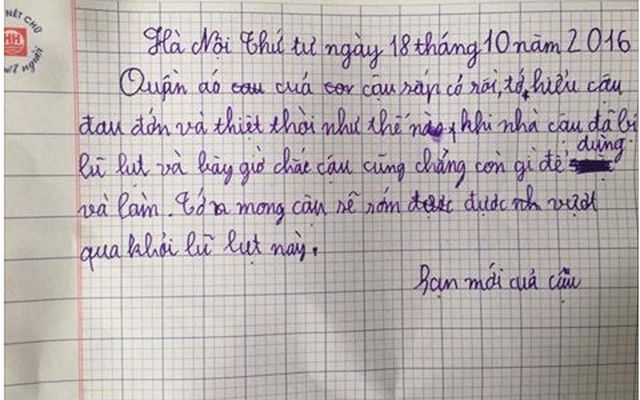 NÉT CHỮ
NẾT người
Hà Nội thứ tư ngày 18 tháng 10 năm 2016
Quần áo cau cuả cơr cậu sắp có rồi, tớ hiểu câu
đau đớn và thiệt thời như thế nào, khi nhà câu đã bị
lũ lụt và bây giờ chắc cậu cũng chẳng còn gì để dùng
và làm. Tớ mong cậu sẽ sớm được được vượt
qua khỏi lũ lụt này.
Bạn mới cuả cậu